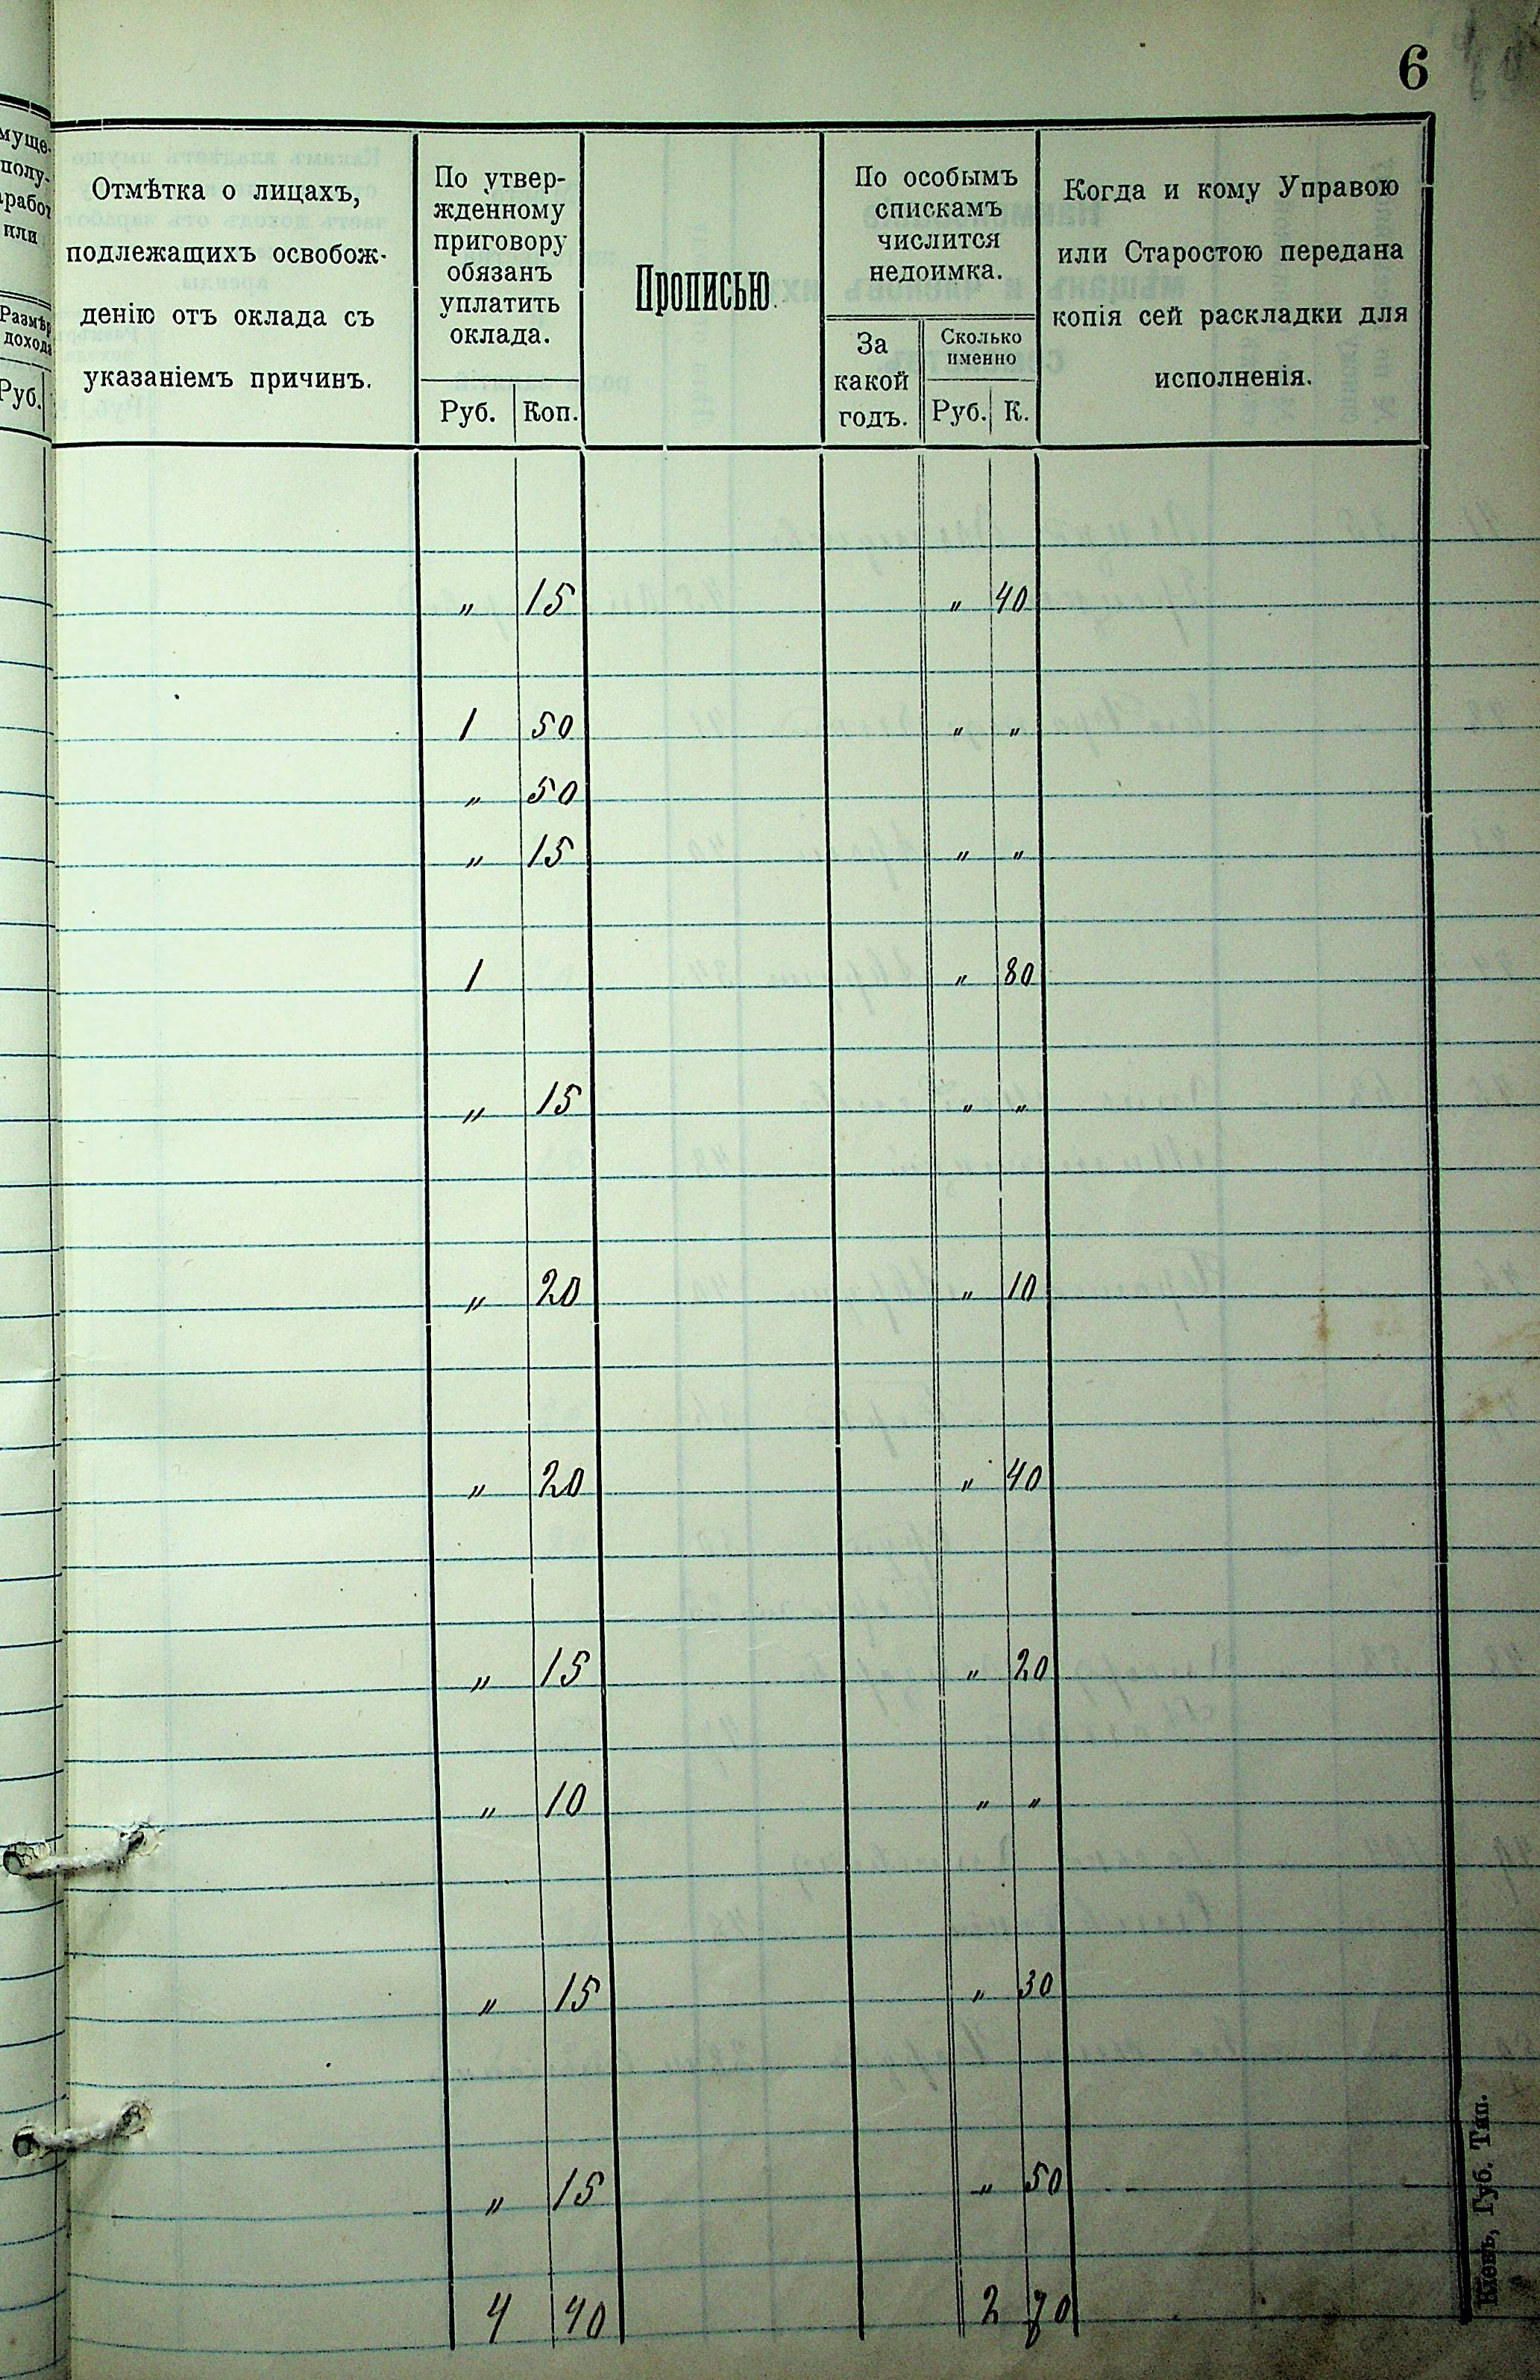 6
муще-
полу-
аработ
или
Размѣр
дохода
Руб.
Отмѣтка о лицахъ,
подлежащихъ освобож-
денію отъ оклада съ
указаніемъ причинъ.
По утвер-
жденному
приговору
обязанъ
уплатить
оклада.
Руб. Коп.
Прописью.
По особымъ
спискамъ
числится
недоимка.
За
какой
годъ.
Сколько
именно
Руб. К.
Когда и кому Управою
или Старостою передана
копія сей раскладки для
исполненія.
" 15 " 40
1 50 " "
" 50
" 15 " "
1 " 80
" 15 " "
" 20 " 10
" 20 " 40
" 15 " 20
" 10 " "
" 15 " 30
" 15 " 50
4 40 2 70
Кіевъ, Губ. Тип.